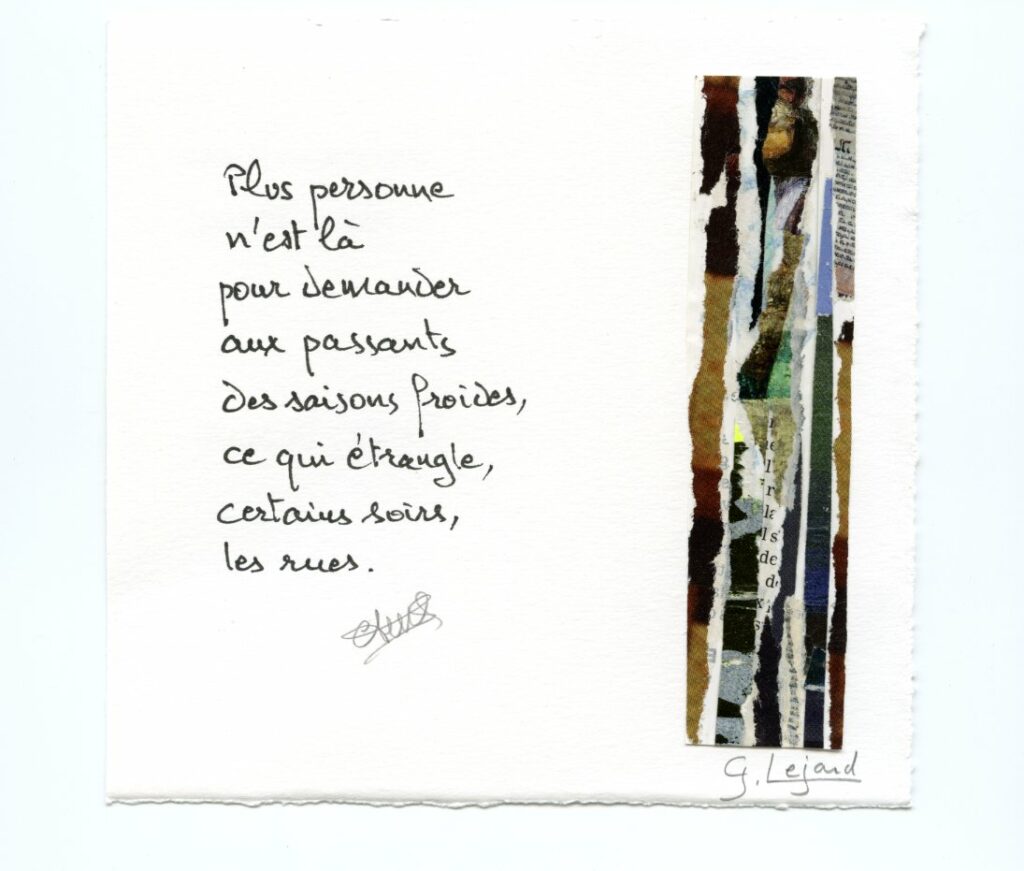 Plus personne
n'est là
pour demander
aux passants
des saisons froides,
ce qui étrangle,
certains soirs,
les rues.
la
ls
de
G. Lejard